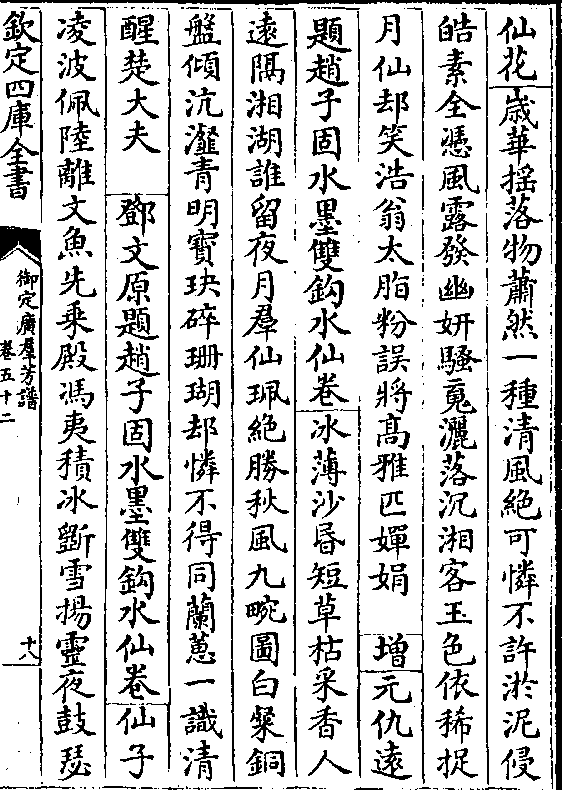 仙花歳華揺落物蕭然一種清風絶可憐不許淤泥侵
皓素全憑風露發幽妍騷䰟灑落沉湘客玉色依稀捉
月仙却笑浩翁太脂粉誤將髙雅匹嬋娟　增元仇逺
題趙子固水墨雙鈎水仙卷冰薄沙昏短草枯采香人
逺隔湘湖誰留夜月羣仙珮絶勝秋風九畹圖白粲銅
盤傾沆瀣青明寳玦碎珊瑚却憐不得同蘭蕙一識清
醒楚大夫　鄧文原題趙子固水墨雙鈎水仙卷仙子
凌波佩陸離文魚先乗殿馮夷積冰斵雪揚靈夜鼓瑟
欽定四庫全書
御定廣羣芳譜
卷五十二
十八